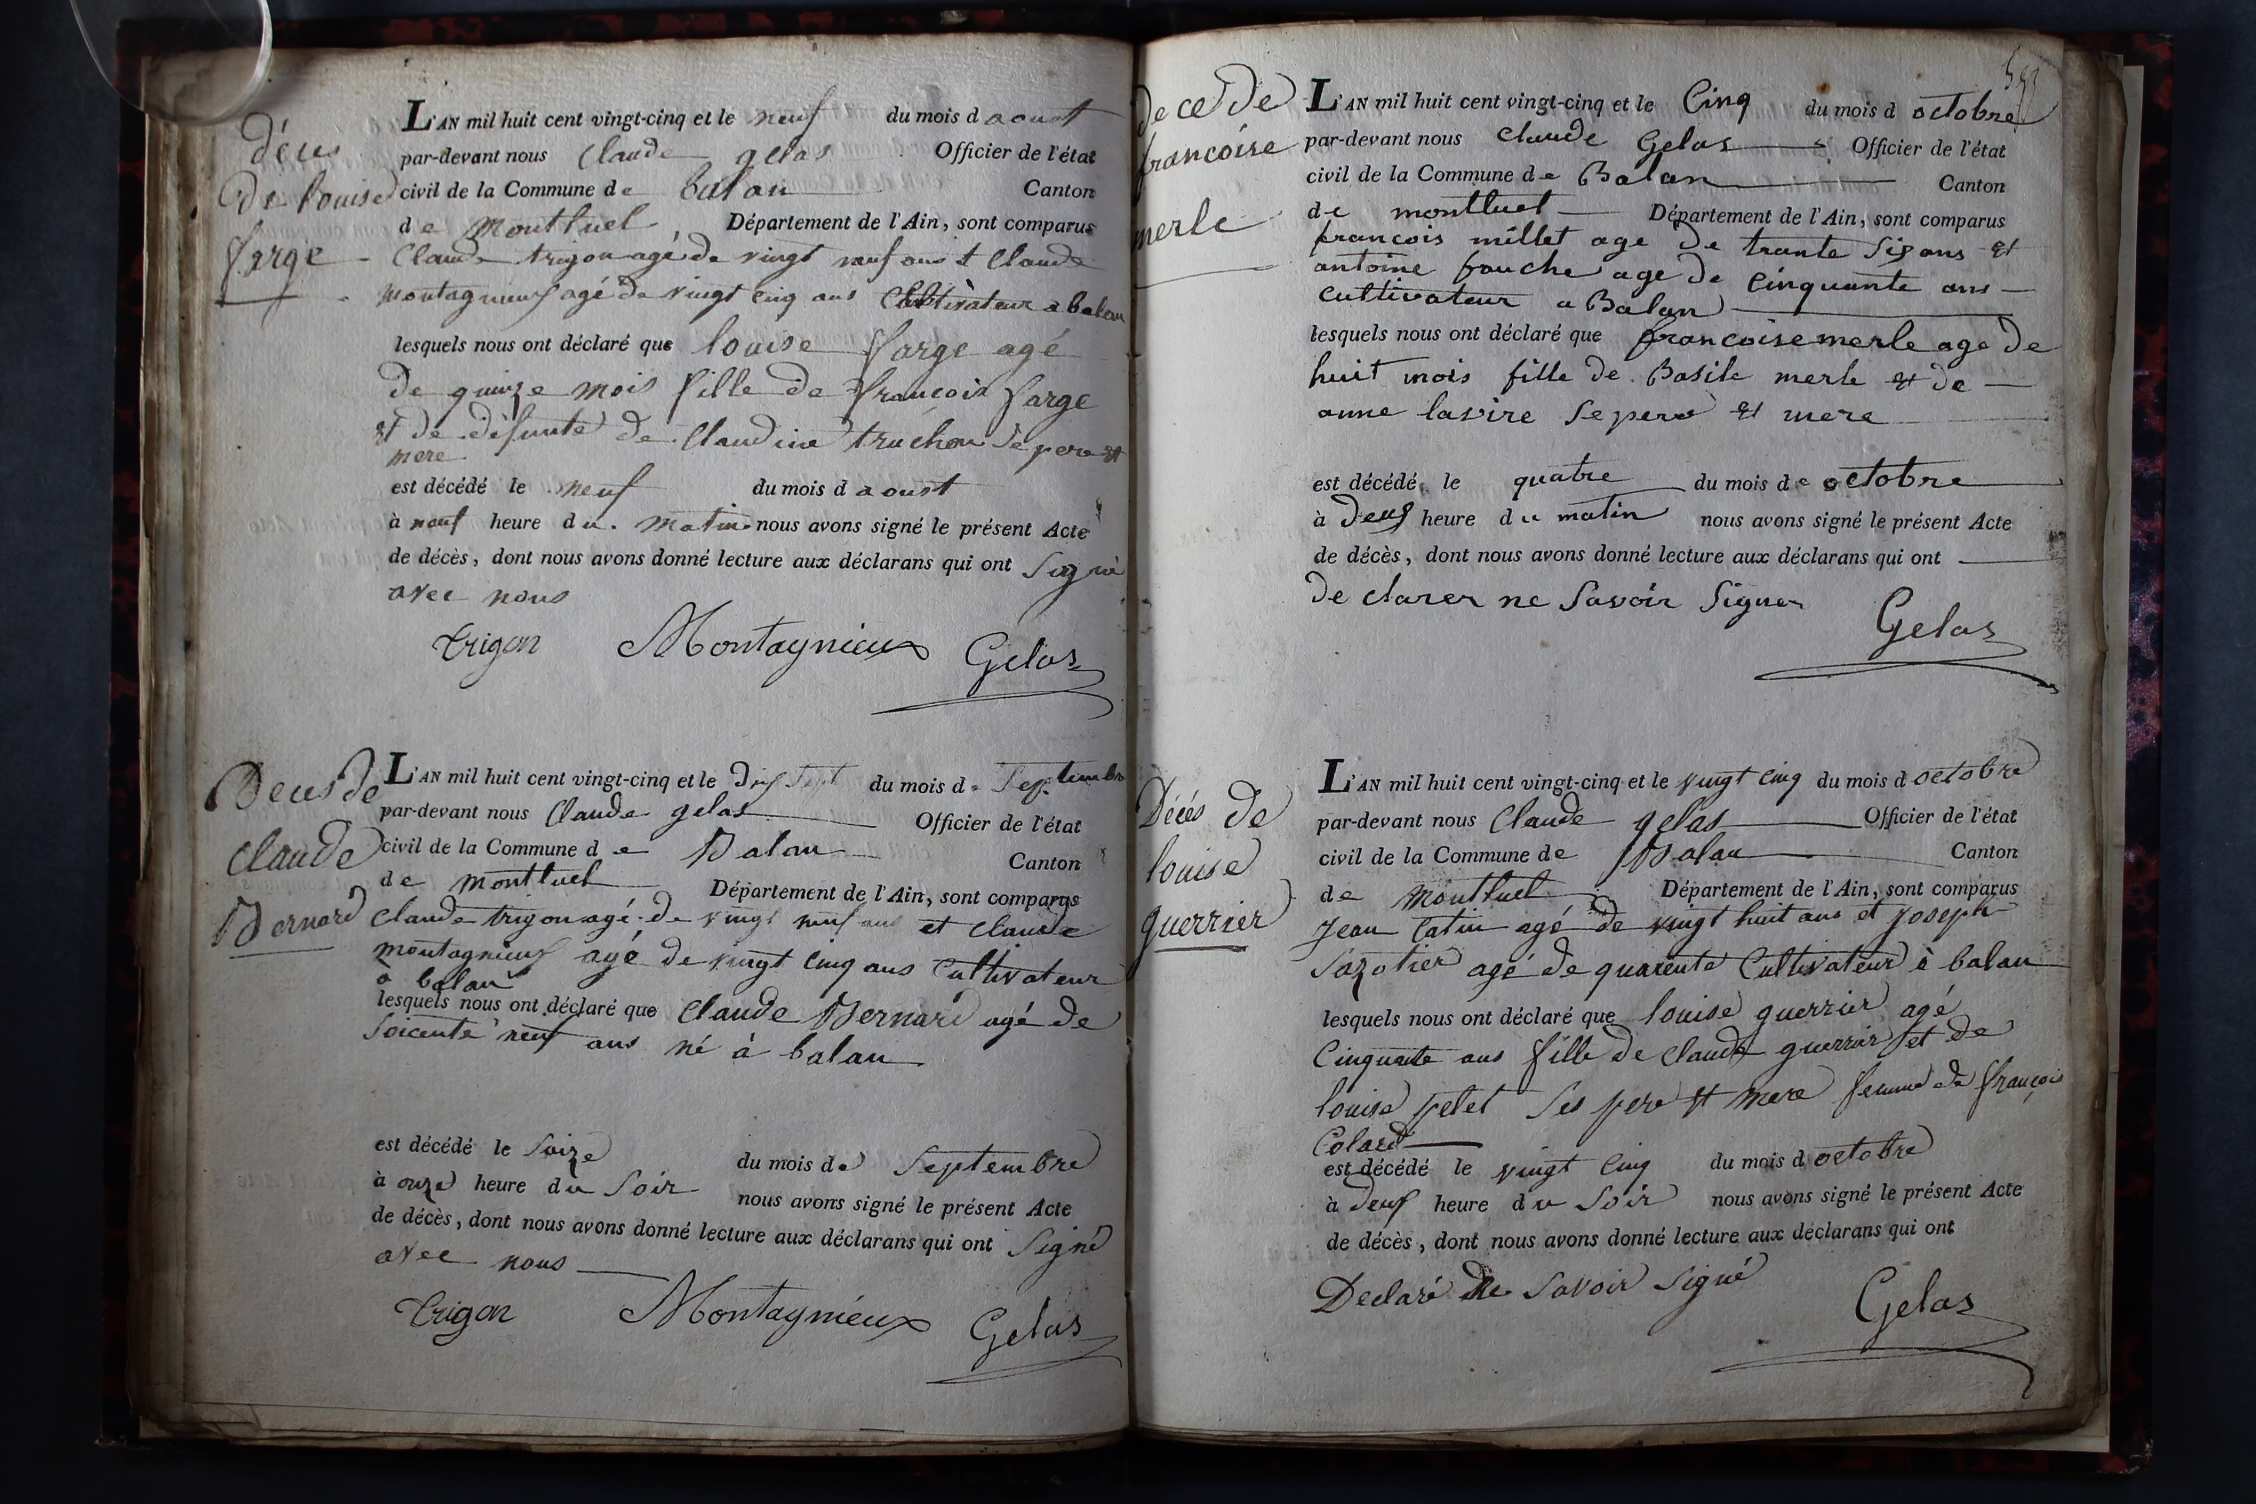 décus
de louise
farge
L'AN mil huit cent vingt-cinq et le neuf du mois d aoust
par-devant nous Claude gelas Officier de l'état
civil de la Commune de balan Canton
de Montluel Département de l'Ain, sont comparus
Claude trigon agé de vingt neuf ans et Claude
montagnieux agé de vingt cinq ans Cultivateur a balan
lesquels nous ont déclaré que louise farge agé
de quinze mois fille de françois farge
et de défunte de Claudine truchon Se pere et
mere
est décédé le neuf du mois d aoust
à neuf heure du matin nous avons signé le présent Acte
de décès, dont nous avons donné lecture aux déclarans qui ont Signé
avec nous
trigon Montagnieux Gelas
Decus de
Claude
Bernard
L'AN mil huit cent vingt-cinq et le dix sept du mois de Septembre
par-devant nous Claude gelas Officier de l'état
civil de la Commune de Balan Canton
de montluel Département de l'Ain, sont comparus
Claude trigon agé de vingt neuf ans et Claude
montagnieux agé de vingt cinq ans Cultivateur
a balan
lesquels nous ont déclaré que Claude Bernard agé de
Soicente neuf ans né à balan
est décédé le Saize du mois de Septembre
à onze heure du Soir nous avons signé le présent Acte
de décès, dont nous avons donné lecture aux déclarans qui ont Signé
avec nous
trigon Montagnieux Gelas
Deces de
francoise
merle
L'AN mil huit cent vingt-cinq et le Cinq du mois d octobre
par-devant nous Claude Gelas Officier de l'état
civil de la Commune de Balan Canton
de montluel Département de l'Ain, sont comparus
francois millet age de trante Six ans et
antoine fouche age de Cinquante ans
cultivateur a Balan
lesquels nous ont déclaré que francoise merle age de
huit mois fille de Basile merle et de
anne lavire Se pere et mere
est décédé le quatre du mois de octobre
à Deux heure du matin nous avons signé le présent Acte
de décès, dont nous avons donné lecture aux déclarans qui ont
De clarer ne Savoir Signer
Gelas
Décés de
louise
guerrier
L'AN mil huit cent vingt-cinq et le vingt cinq du mois d octobre
par-devant nous Claude gelas Officier de l'état
civil de la Commune de Balan Canton
de Montluel Département de l'Ain, sont comparus
Jean Catin agé de vingt huit ans et Joseph
Sazotier agé de quarente Cultivateur à balan
lesquels nous ont déclaré que louise guerrier agé
Cinquante ans fille de Claude guerrier et de
louise pelet Ses pere et mere femme de françois
Colard
est décédé le vingt Cinq du mois d octobre
à Deux heure du Soir nous avons signé le présent Acte
de décès, dont nous avons donné lecture aux déclarans qui ont
Declaré Ne Savoir Signé
Gelas